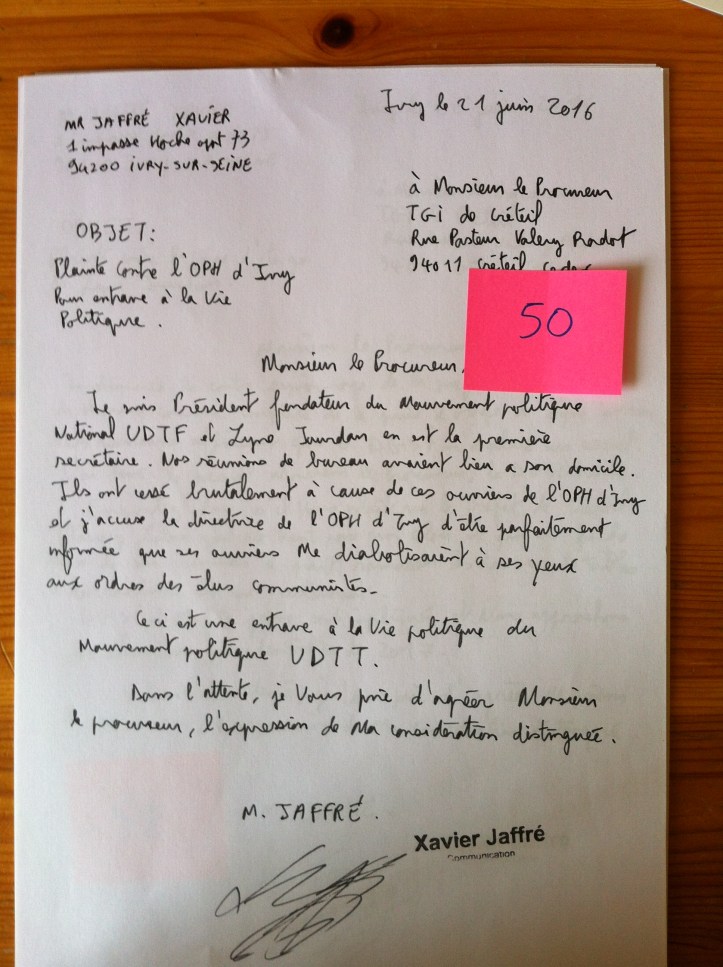 Ivry le 21 juin 2016
MR JAFFRÉ XAVIER
1 impasse Hoche apt 73
94200 IVRY-SUR-SEINE
à Monsieur le Procureur
TGI de Créteil
Rue Pasteur Valery Radot
94011 Créteil cedex
OBJET:
Plainte contre l'OPH d'Ivry
Pour entrave à la Vie
Politique.
50
Monsieur le Procureur,
Je suis Président fondateur du Mouvement politique
National UDTF et Lyne Jourdan en est la première
secrétaire. Nos réunions de bureau avaient lieu a son domicile.
Ils ont cessé brutalement à cause de ces ouvriers de l'OPH d'Ivry
et j'accuse la directrice de l'OPH d'Ivry d'être parfaitement
informée que ses ouvriers me diabolisaient à ses yeux
aux ordres des élus communistes.
Ceci est une entrave à la Vie politique du
Mouvement politique UDTT.
Dans l'attente, je Vous prie d'agréer Monsieur
le procureur, l'expression de Ma considération distinguée.
M. JAFFRÉ.
Xavier Jaffré
Communication